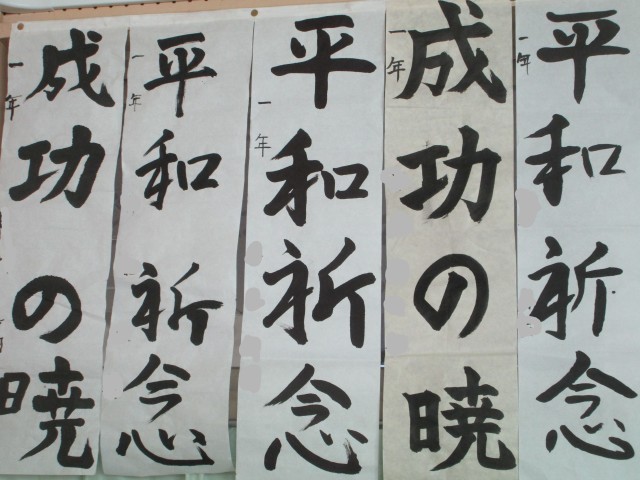 平和祈念
一年
成功の暁
一年
平和祈念
一年
平和祈念
一年
成功の暁
一年